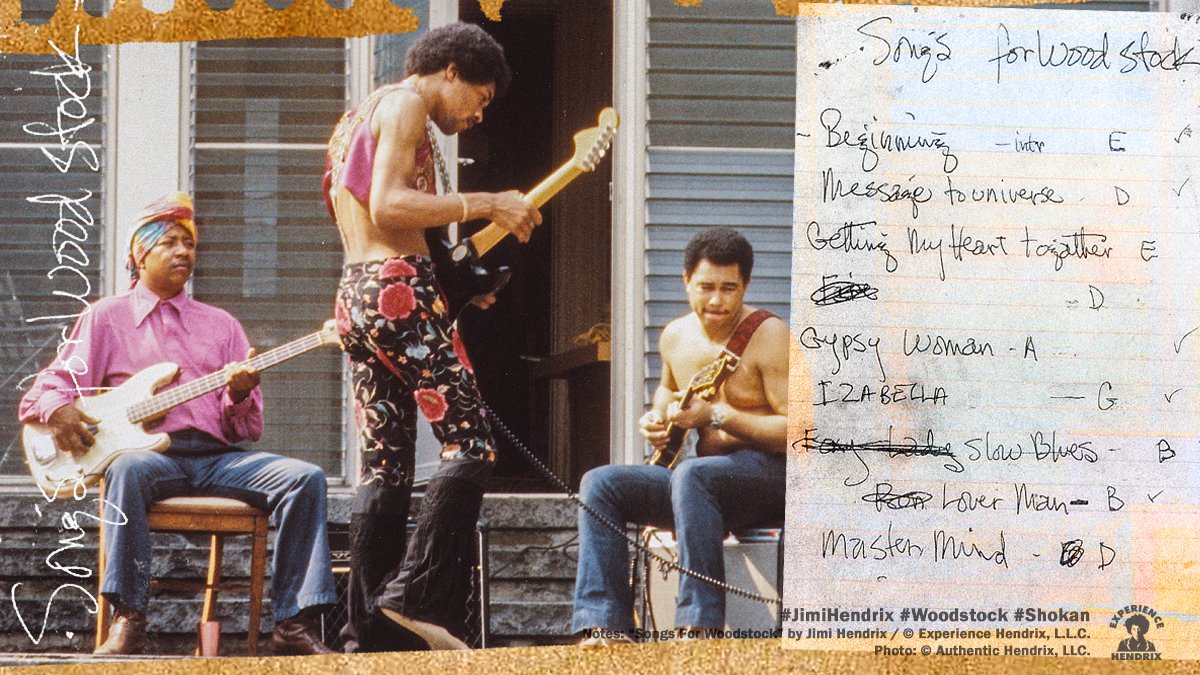 Songs for Wood Stock
Songs for Wood Stock
- Beginning - intr E ✓
Message to universe - D ✓
Getting My Heart togather E
- D
Gypsy Woman - A ✓
IZABELLA — G ✓
Slow Blues - B
Lover Man - B ✓
Master Mind - D
#JimiHendrix #Woodstock #Shokan
Notes: "Songs For Woodstock" by Jimi Hendrix / © Experience Hendrix, L.L.C.
Photo: © Authentic Hendrix, LLC.
EXPERIENCE
HENDRIX